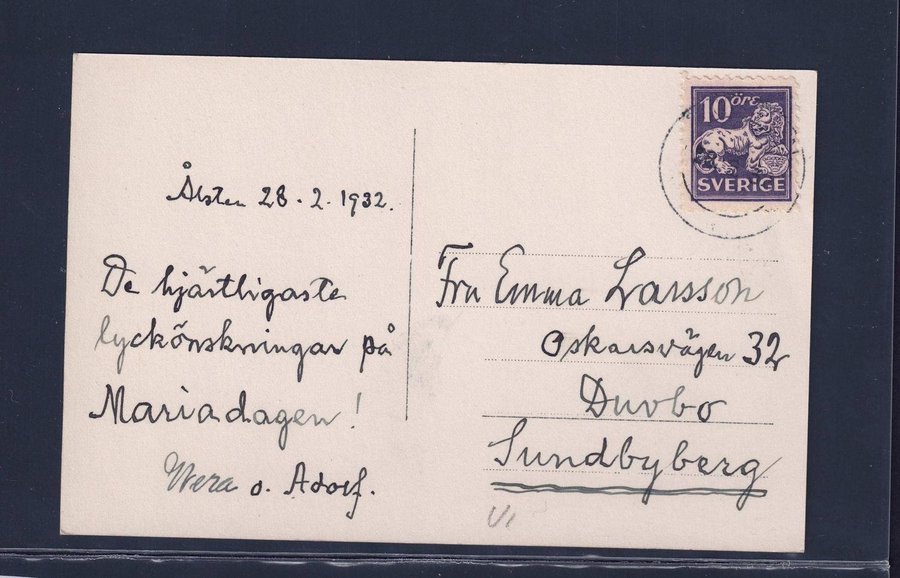 10 öre
SVERIGE
Ålsten 28.2.1932.
De hjärtligaste
lyckönskningar på
Mariadagen!
Wera o. Adolf.
Fru Emma Larsson
Oskarsvägen 32
Duvbo
Sundbyberg